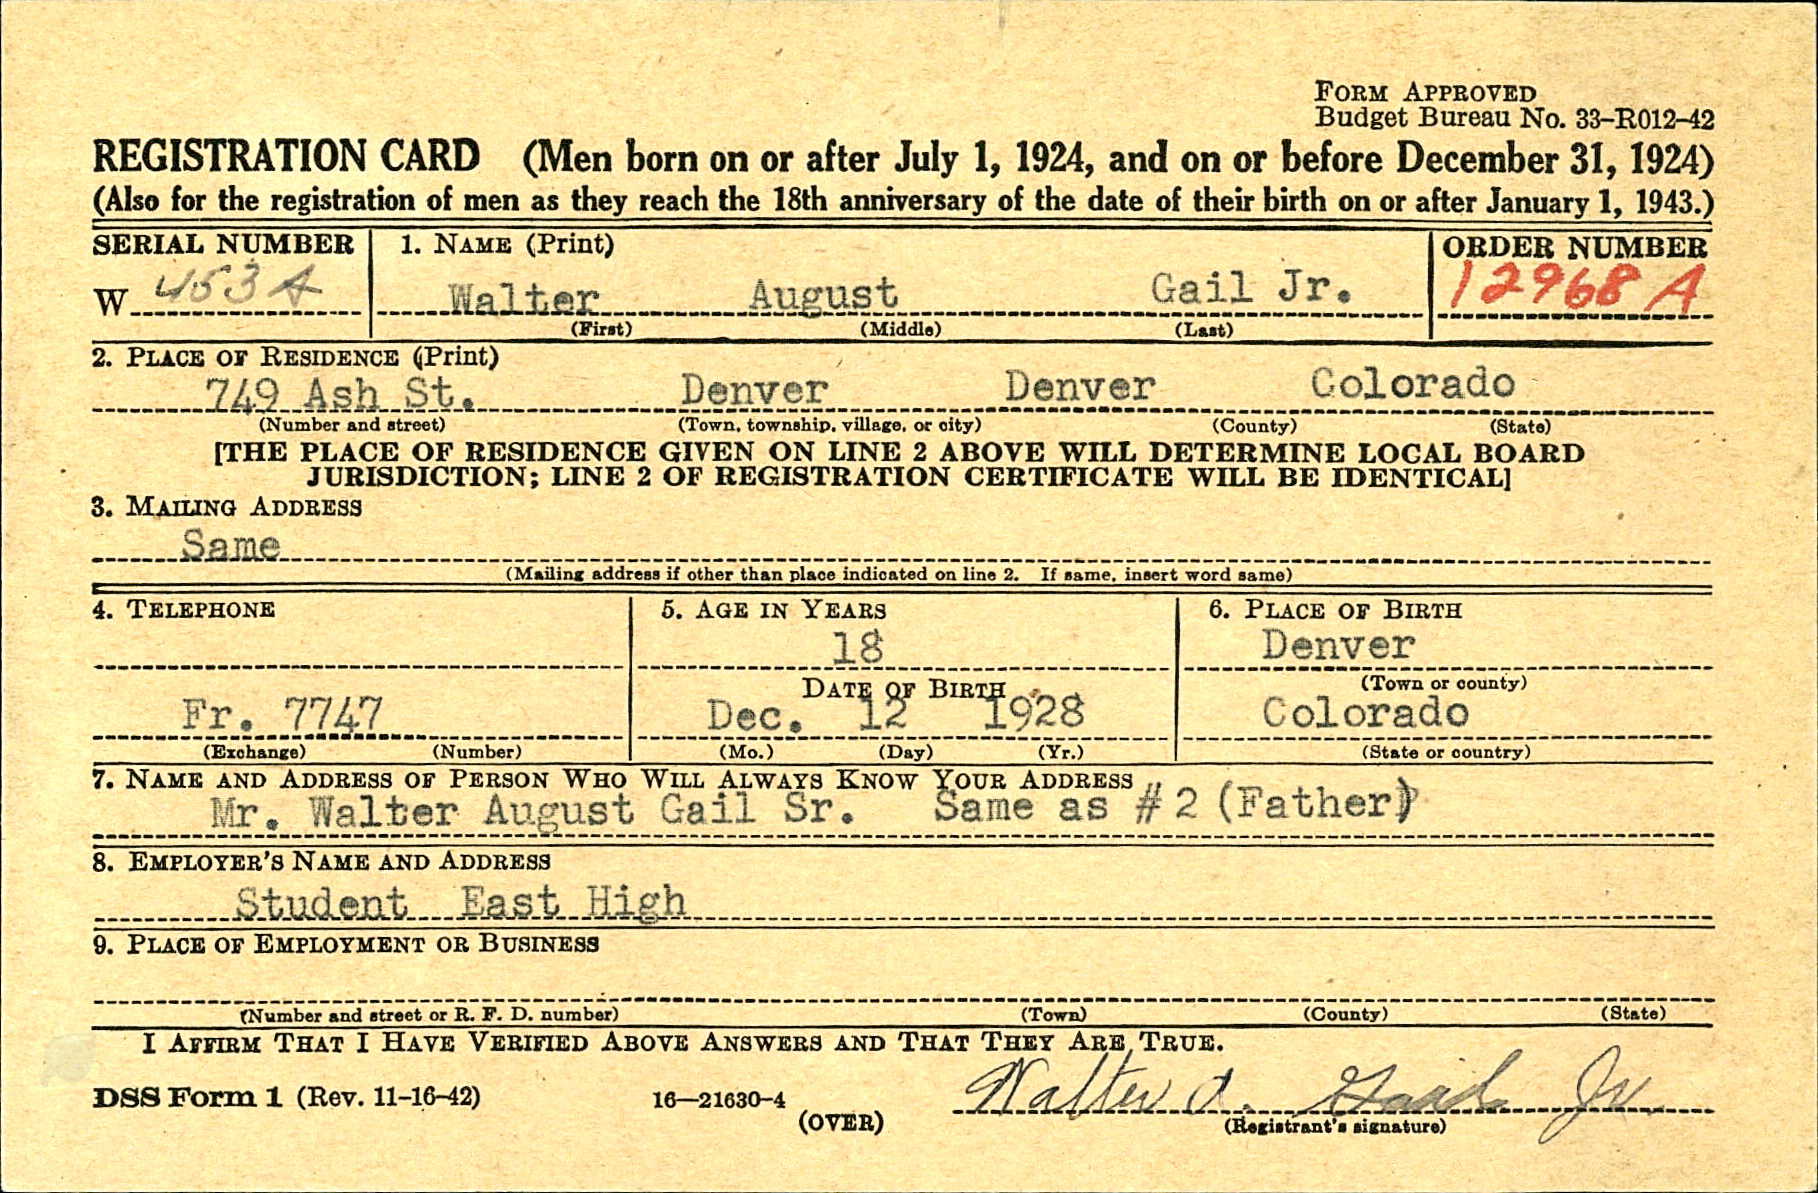 FORM APPROVED
Budget Bureau No. 33–R012–42
REGISTRATION CARD (Men born on or after July 1, 1924, and on or before December 31, 1924)
(Also for the registration of men as they reach the 18th anniversary of the date of their birth on or after January 1, 1943.)
SERIAL NUMBER 1. NAME (Print) ORDER NUMBER
W 453 A Walter August Gail Jr. 12968 A
(First) (Middle) (Last)
2. PLACE OF RESIDENCE (Print)
749 Ash St. Denver Denver Colorado
(Number and street) (Town, township, village, or city) (County) (State)
[THE PLACE OF RESIDENCE GIVEN ON LINE 2 ABOVE WILL DETERMINE LOCAL BOARD
JURISDICTION; LINE 2 OF REGISTRATION CERTIFICATE WILL BE IDENTICAL]
3. MAILING ADDRESS
Same
(Mailing address if other than place indicated on line 2. If same, insert word same)
4. TELEPHONE 5. AGE IN YEARS 6. PLACE OF BIRTH
18 Denver
DATE OF BIRTH (Town or county)
Fr. 7747 Dec. 12 1928 Colorado
(Exchange) (Number) (Mo.) (Day) (Yr.) (State or country)
7. NAME AND ADDRESS OF PERSON WHO WILL ALWAYS KNOW YOUR ADDRESS
Mr. Walter August Gail Sr. Same as #2 (Father)
8. EMPLOYER'S NAME AND ADDRESS
Student East High
9. PLACE OF EMPLOYMENT OR BUSINESS
(Number and street or R. F. D. number) (Town) (County) (State)
I AFFIRM THAT I HAVE VERIFIED ABOVE ANSWERS AND THAT THEY ARE TRUE.
DSS Form 1 (Rev. 11-16-42) 16—21630-4 Walter A. Gail Jr
(OVER) (Registrant's signature)